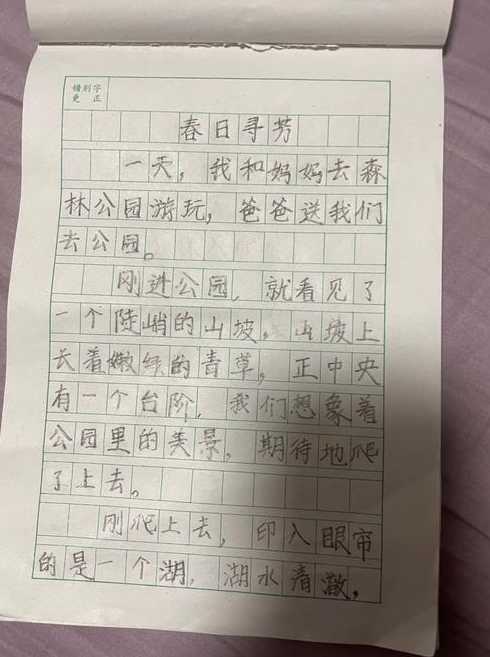 错别字
更正
春日寻芳
一天，我和妈妈去森
林公园游玩，爸爸送我们
去公园。
刚进公园，就看见了
一个陡峭的山坡，山坡上
长着嫩绿的青草，正中央
有一个台阶，我们想象着
公园里的美景，期待地爬
了上去。
刚爬上去，印入眼帘
的是一个湖，湖水清澈，